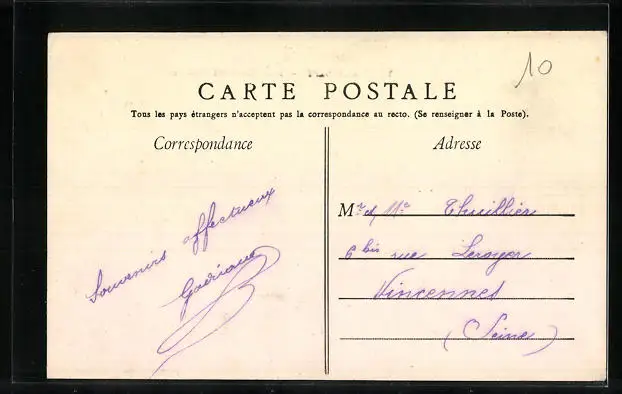 10
CARTE POSTALE
Tous les pays étrangers n'acceptent pas la correspondance au recto. (Se renseigner à la Poste).
Correspondance
Adresse
Souvenirs affectueux
Mr et Me Thuillier
6 bis rue Leroyer
Vincennes
(Seine)